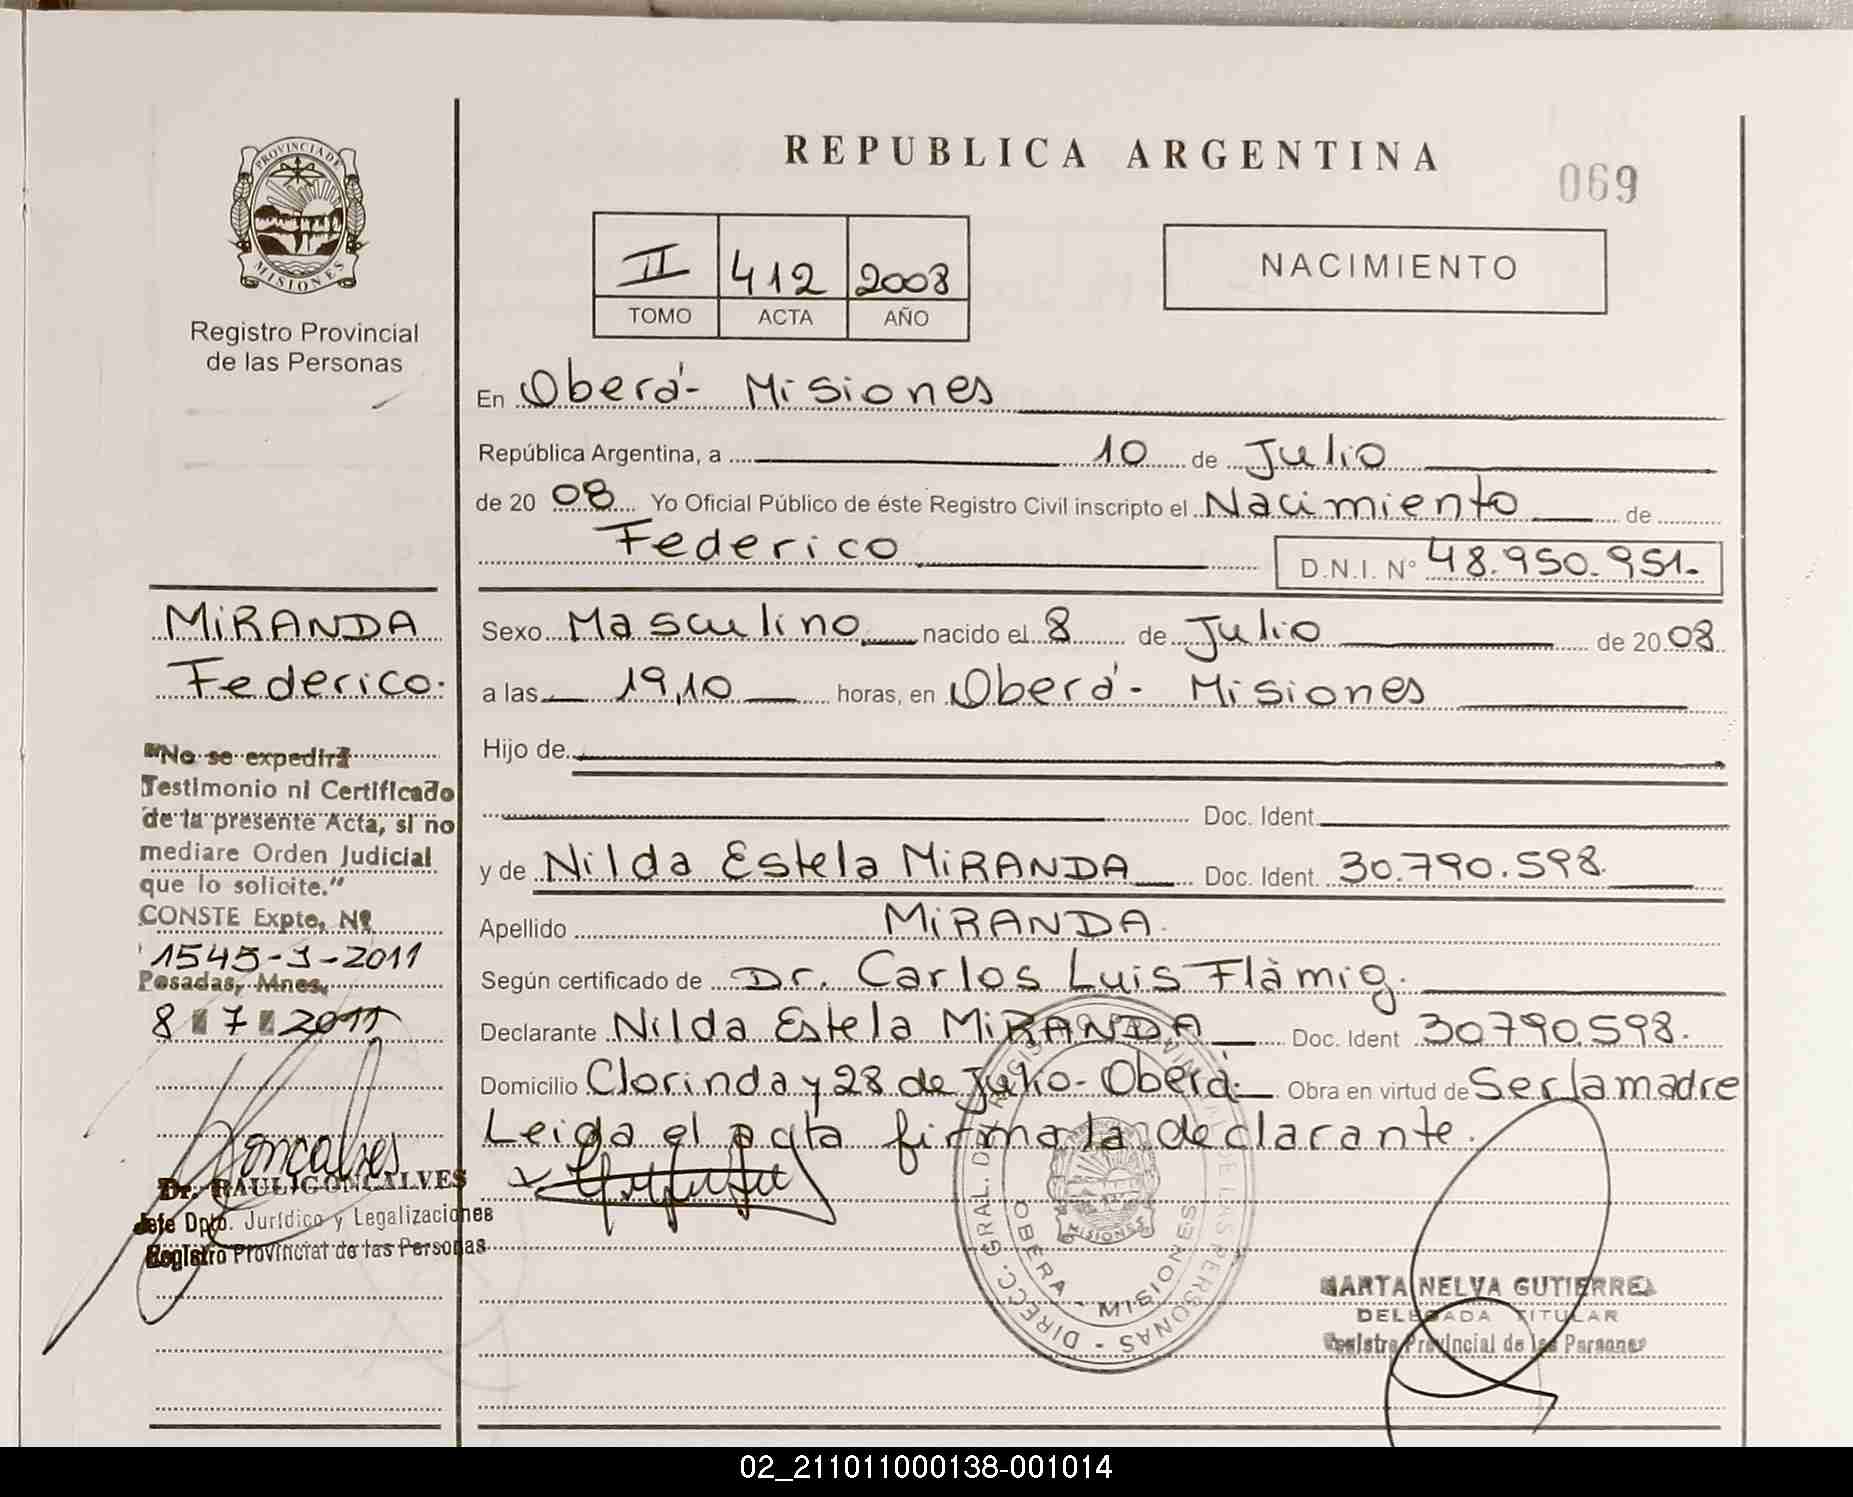 REPUBLICA ARGENTINA
069
PROVINCIA DE
MISIONES
Registro Provincial
de las Personas
II 412 2008
TOMO ACTA AÑO
NACIMIENTO
En Oberá - Misiones
República Argentina, a 10 de Julio
de 20 08 Yo Oficial Público de éste Registro Civil inscripto el Nacimiento de
Federico D.N.I. N° 48.950.951.-
MiRANDA
Federico.
Sexo Masculino nacido el 8 de Julio de 20 08
a las 19,10 horas, en Oberá - Misiones
Hijo de
Doc. Ident.
y de Nilda Estela MiRANDA Doc. Ident. 30.790.598.
Apellido MiRANDA.
Según certificado de Dr. Carlos Luis Flàmig.
Declarante Nilda Estela MiRANDA Doc. Ident 30790598.
Domicilio Clorinda y 28 de Julio - Oberá. Obra en virtud de Ser la madre
Leida el acta firma la declarante.
"No se expedirá
Testimonio ni Certificado
de la presente Acta, si no
mediare Orden Judicial
que lo solicite."
CONSTE Expte. Nº
1545-J-2011
Posadas, Mnes.
8 7 2011
Goncalves
Dr. RAUL GONCALVES
Jefe Dpto. Jurídico y Legalizaciones
Registro Provincial de las Personas
DIRECC. GRAL. DE REGISTRO PROVINCIAL DE LAS PERSONAS -
OBERA - MISIONES
MISIONES
MARTA NELVA GUTIERREZ
DELEGADA TITULAR
Registro Provincial de las Personas
02_211011000138-001014